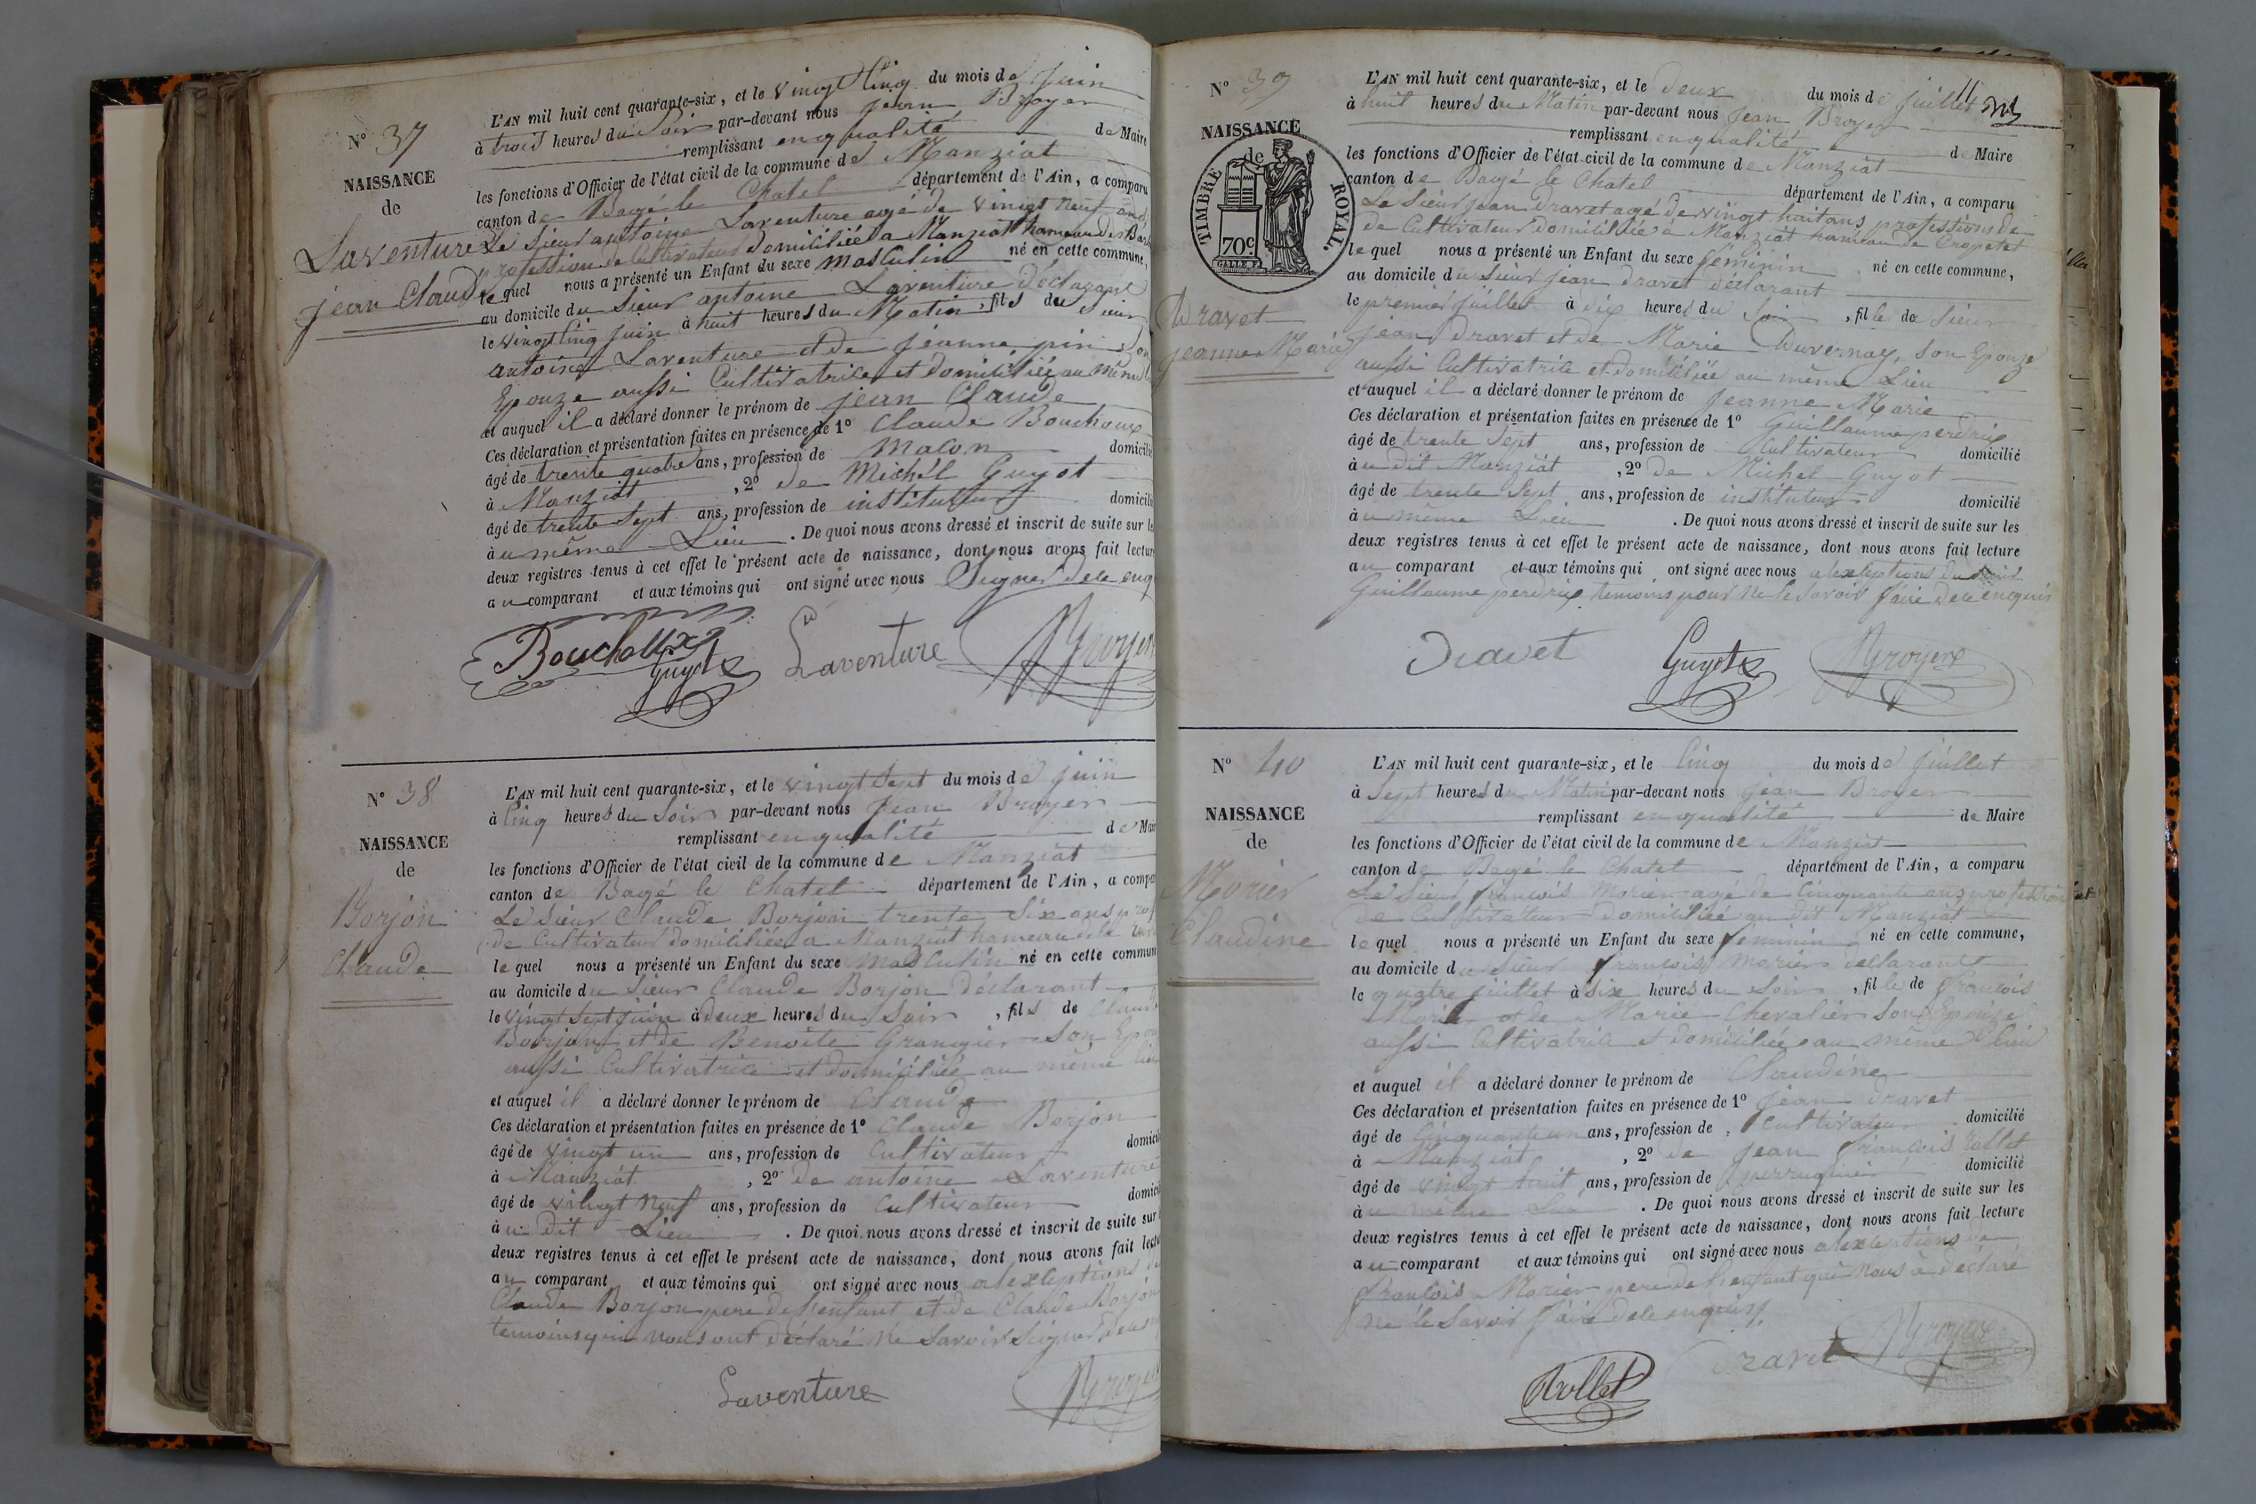 N° 37
NAISSANCE
de
Laventure
jean Claude
L'AN mil huit cent quarante-six, et le vingt Cinq du mois de juin
à trois heures du Soir par-devant nous jean Broyer
remplissant en qualité de Maire
les fonctions d'Officier de l'état civil de la commune de Manziat
canton de Bagé le Chatel département de l'Ain, a comparu
Le Sieur antoine Laventure agé de vingt neuf ans
profession de Cultivateur domiciliée a Manziat hameau de
le quel nous a présenté un Enfant du sexe masculin né en cette commune,
au domicile du Sieur antoine Laventure déclarant
le vingt Cinq juin à huit heures du Matin, fils du Sieur
antoine Laventure et de jeanne
Epouze aussi Cultivatrice et domiciliée au même
et auquel il a déclaré donner le prénom de jean Claude
Ces déclaration et présentation faites en présence de 1° Claude Bouchoux
âgé de trente quatre ans, profession de macon domicilié
à Manziat, 2° de Michel Guyot
âgé de trente Sept ans, profession de instituteur domicilié
à u même Lieu. De quoi nous avons dressé et inscrit de suite sur les
deux registres tenus à cet effet le présent acte de naissance, dont nous avons fait lecture
au comparant et aux témoins qui ont signé avec nous Signer de ce enq
Bouchoux
Guyot
Laventure
Broyer
N° 38
NAISSANCE
de
Borjon
Claude
L'AN mil huit cent quarante-six, et le vingt Sept du mois de juin
à Cinq heures du Soir par-devant nous jean Broyer
remplissant en qualité de Mai
les fonctions d'Officier de l'état civil de la commune de Manziat
canton de Bagé le Chatel département de l'Ain, a compa
Le Sieur Claude Borjon trente Six ans prof
de Cultivateur domiciliée a Manziat hameau de
le quel nous a présenté un Enfant du sexe masculin né en cette commun
au domicile du Sieur Claude Borjon Déclarant
le vingt Sept juin à deux heures du Soir, fils de Claude
Borjon et de Benoite Grangier Son Epou
aussi Cultivatrice et domiciliée au même lieu
et auquel il a déclaré donner le prénom de Claude
Ces déclaration et présentation faites en présence de 1° Claude Borjon
âgé de vingt un ans, profession de Cultivateur domicili
à Manziat, 2° de antoine Laventure
âgé de vingt neuf ans, profession de Cultivateur domicil
à u dit Lieu. De quoi nous avons dressé et inscrit de suite sur
deux registres tenus à cet effet le présent acte de naissance, dont nous avons fait lectu
au comparant et aux témoins qui ont signé avec nous a lexceptions de
Claude Borjon pere de lenfant et de Claude Borjon
temoins qui nous ont déclaré ne Savoir Signer de ce
Laventure
Broyer
N° 39
NAISSANCE
de
TIMBRE ROYAL.
70c
Dravet
jeanne Marie
L'AN mil huit cent quarante-six, et le deux du mois de juillet
à huit heures du Matin par-devant nous jean Broyer
remplissant en qualité de Maire
les fonctions d'Officier de l'état civil de la commune de Manziat
canton de Bagé le Chatel département de l'Ain, a comparu
Le Sieur jean Dravet agé de vingt huit ans professions de
de Cultivateur domiciliée a Manziat hameau de Cropetet
le quel nous a présenté un Enfant du sexe féminin né en cette commune,
au domicile du Sieur jean dravet déclarant
le premier juillet à dix heures du Soir, fille de Sieur
jean Dravet et de Marie Duvernay, son Epouze
aussi Cultivatrice et domiciliée au même Lieu
et auquel il a déclaré donner le prénom de jeanne Marie
Ces déclaration et présentation faites en présence de 1° Guillaume perdrix
âgé de trente Sept ans, profession de Cultivateur domicilié
à u dit Manziat, 2° de Michel Guyot
âgé de trente Sept ans, profession de instituteur domicilié
à u même Lieu. De quoi nous avons dressé et inscrit de suite sur les
deux registres tenus à cet effet le présent acte de naissance, dont nous avons fait lecture
au comparant et aux témoins qui ont signé avec nous a lexceptions du
Guillaume perdrix temoins pour ne le Savoir faire de ce enquis
Dravet
Guyot
Broyer
N° 40
NAISSANCE
de
Morier
Claudine
L'AN mil huit cent quarante-six, et le Cinq du mois de juillet
à Sept heures du Matin par-devant nous jean Broyer
remplissant en qualité de Maire
les fonctions d'Officier de l'état civil de la commune de Manziat
canton de Bagé le Chatel département de l'Ain, a comparu
Le Sieur francois Morier agé de Cinquante ans profession
de Cultivateur domiciliée au dit Manziat
le quel nous a présenté un Enfant du sexe féminin né en cette commune,
au domicile du Sieur francois Morier declarant
le quatre juillet à six heures du Soir, fille de francois
Morier et de Marie Chevalier Son Epouze
aussi Cultivatrice et domiciliée au même Lieu
et auquel il a déclaré donner le prénom de Claudine
Ces déclaration et présentation faites en présence de 1° jean Dravet
âgé de Cinquante un ans, profession de Cultivateur domicilié
à Manziat, 2° de jean francois Rollet
âgé de vingt huit ans, profession de perruquier domicilié
à u même Lieu. De quoi nous avons dressé et inscrit de suite sur les
deux registres tenus à cet effet le présent acte de naissance, dont nous avons fait lecture
au comparant et aux témoins qui ont signé avec nous a lexceptions de
francois Morier pere de lenfant qui nous a déclaré
ne le Savoir faire de ce enquis
Rollet
Dravet
Broyer